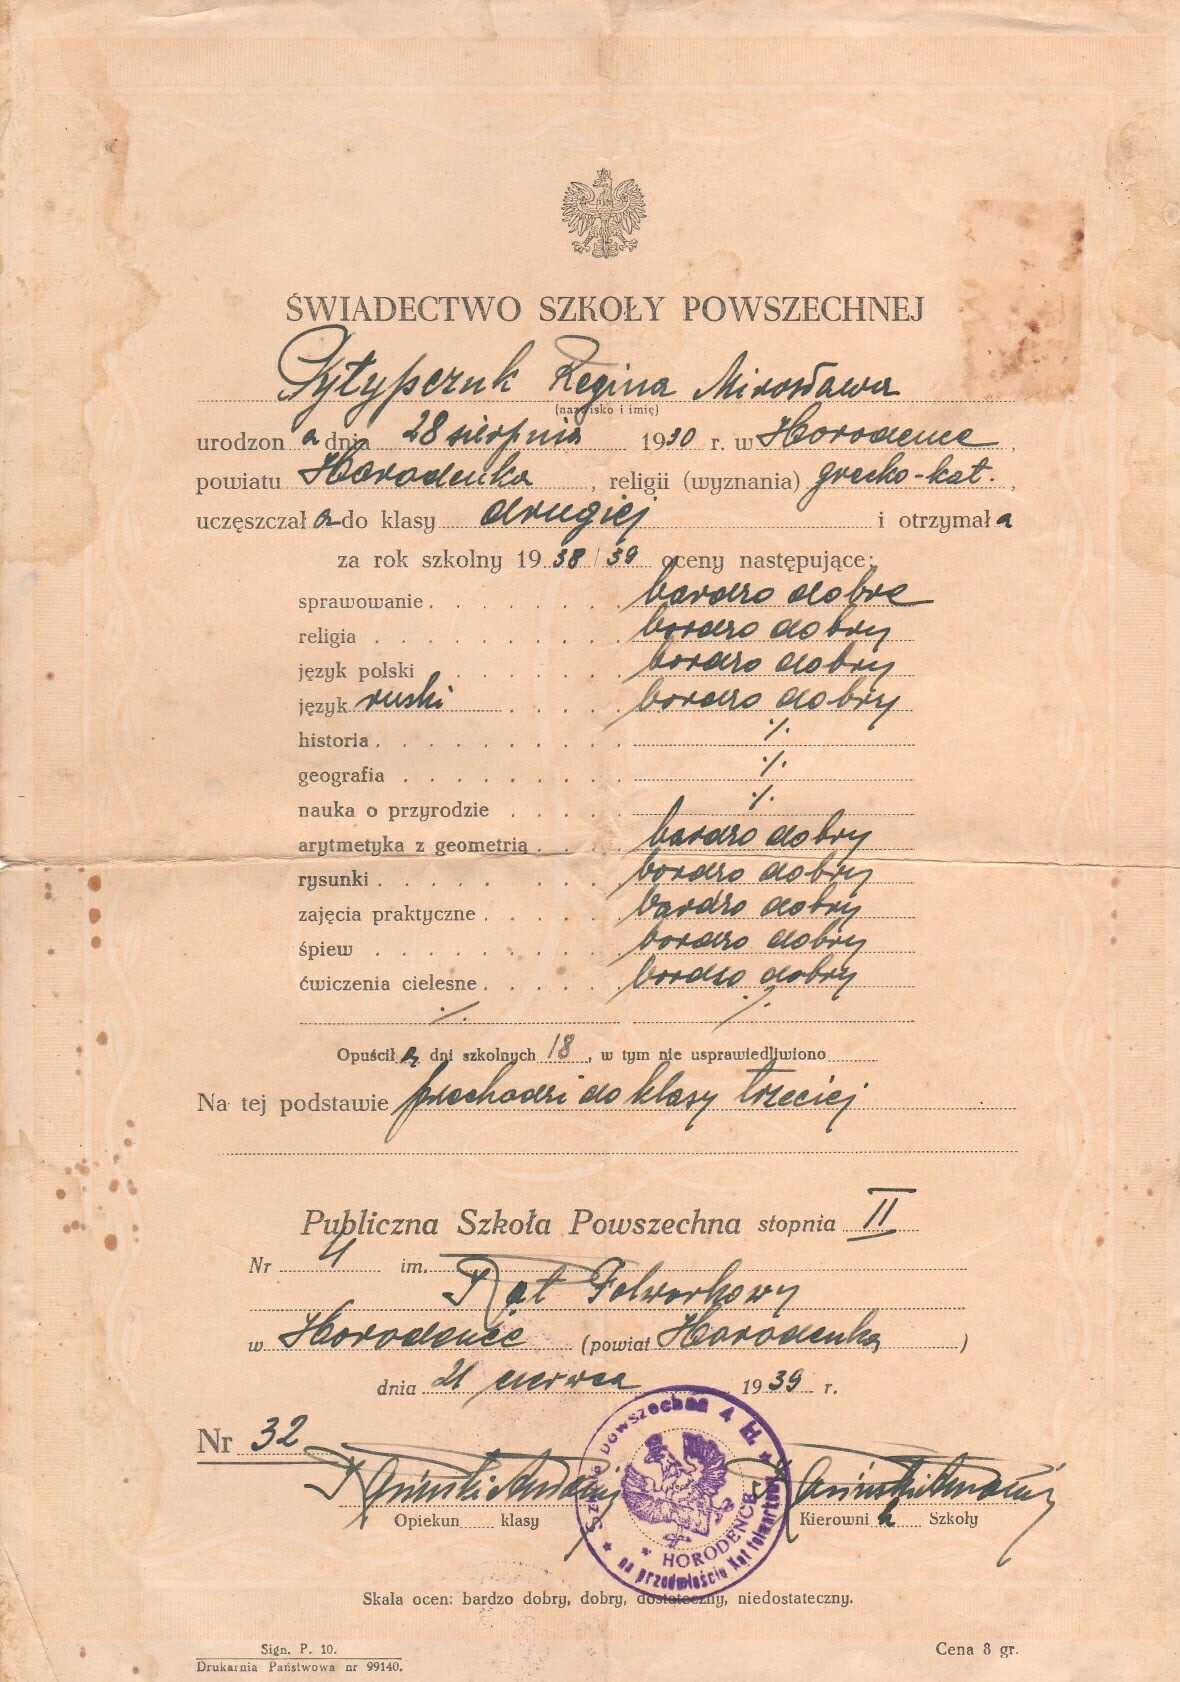 ŚWIADECTWO SZKOŁY POWSZECHNEJ
Pytypczuk Regina Mirosława
(nazwisko i imię)
urodzona dnia 28 sierpnia 1930 r. w Horodence,
powiatu Horodenka, religii (wyznania) grecko-kat.,
uczęszczała do klasy drugiej i otrzymała
za rok szkolny 1938/39 oceny następujące:
sprawowanie bardzo dobre
religia bardzo dobry
język polski bardzo dobry
język ruski bardzo dobry
historia ·/.
geografia ·/.
nauka o przyrodzie ·/.
arytmetyka z geometrią bardzo dobry
rysunki bardzo dobry
zajęcia praktyczne bardzo dobry
śpiew bardzo dobry
ćwiczenia cielesne bardzo dobry
·/. ·/.
Opuściła dni szkolnych 18, w tym nie usprawiedliwiono
Na tej podstawie przechodzi do klasy trzeciej
Publiczna Szkoła Powszechna stopnia II
Nr 4 im.
Kąt Folwarkowy
w Horodence (powiat Horodenka)
dnia 21 czerwca 1939 r.
Nr 32
Opiekun klasy
Kierownik Szkoły
Szkoła Powszechna 4 H.
na przedmieściu Kąt folwarkowy
* HORODENCE
Skala ocen: bardzo dobry, dobry, dostateczny, niedostateczny.
Sign. P. 10.
Drukarnia Państwowa nr 99140.
Cena 8 gr.